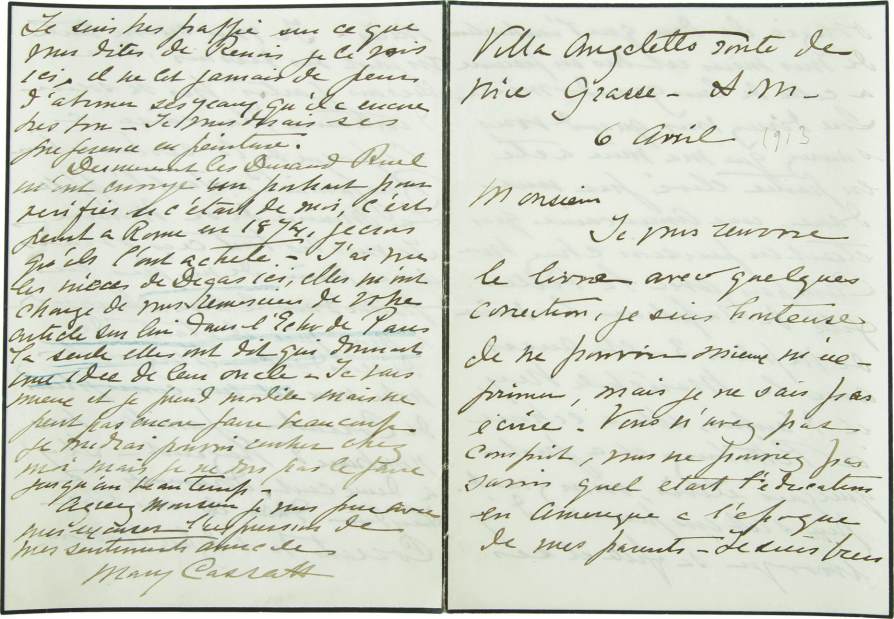 Villa Angeletto route de
Nice Grasse - A M -
6 Avril 1913
Monsieur
Je vous renvoie
le livre avec quelques
correction, je suis honteuse
de ne pouvoir mieux m'ex-
primer, mais je ne sais pas
ecrire - Vous n'avez pas
compris, vous ne pouviez pas
savoir quel etait l'education
en Amerique a l'epoque
de mes parents - Je suis tres
Je suis tres sur ce que
vous dites de Renoir je le vois
ici, il ne lit jamais de peur
d'abimer ses yeux, qu'il a encore
tres bon - Je ses
preference en peinture.
Dernierement les Durand Ruel
m'ont envoyé un portrait pour
verifier si c'était de moi, c'est
peint a Rome en 1874, je crois
qu'ils l'ont acheté. - J'ai vue
les nieces de Degas ici, elles m'ont
chargé de vous remercier de votre
article sur lui dans l'Echo de Paris
La seule elles ont dit qui donnait
une idée de leur oncle - Je vais
mieux et je prend modèle mais ne
peut pas encore faire beaucoup.
je voudrai pouvoir rentrer chez
moi, mais je ne vois pas le faire
jusqu'au beau temps -
Agreez Monsieur je vous prie avec
mes excuses l'expression de
mes sentiments amicales
Mary Cassatt